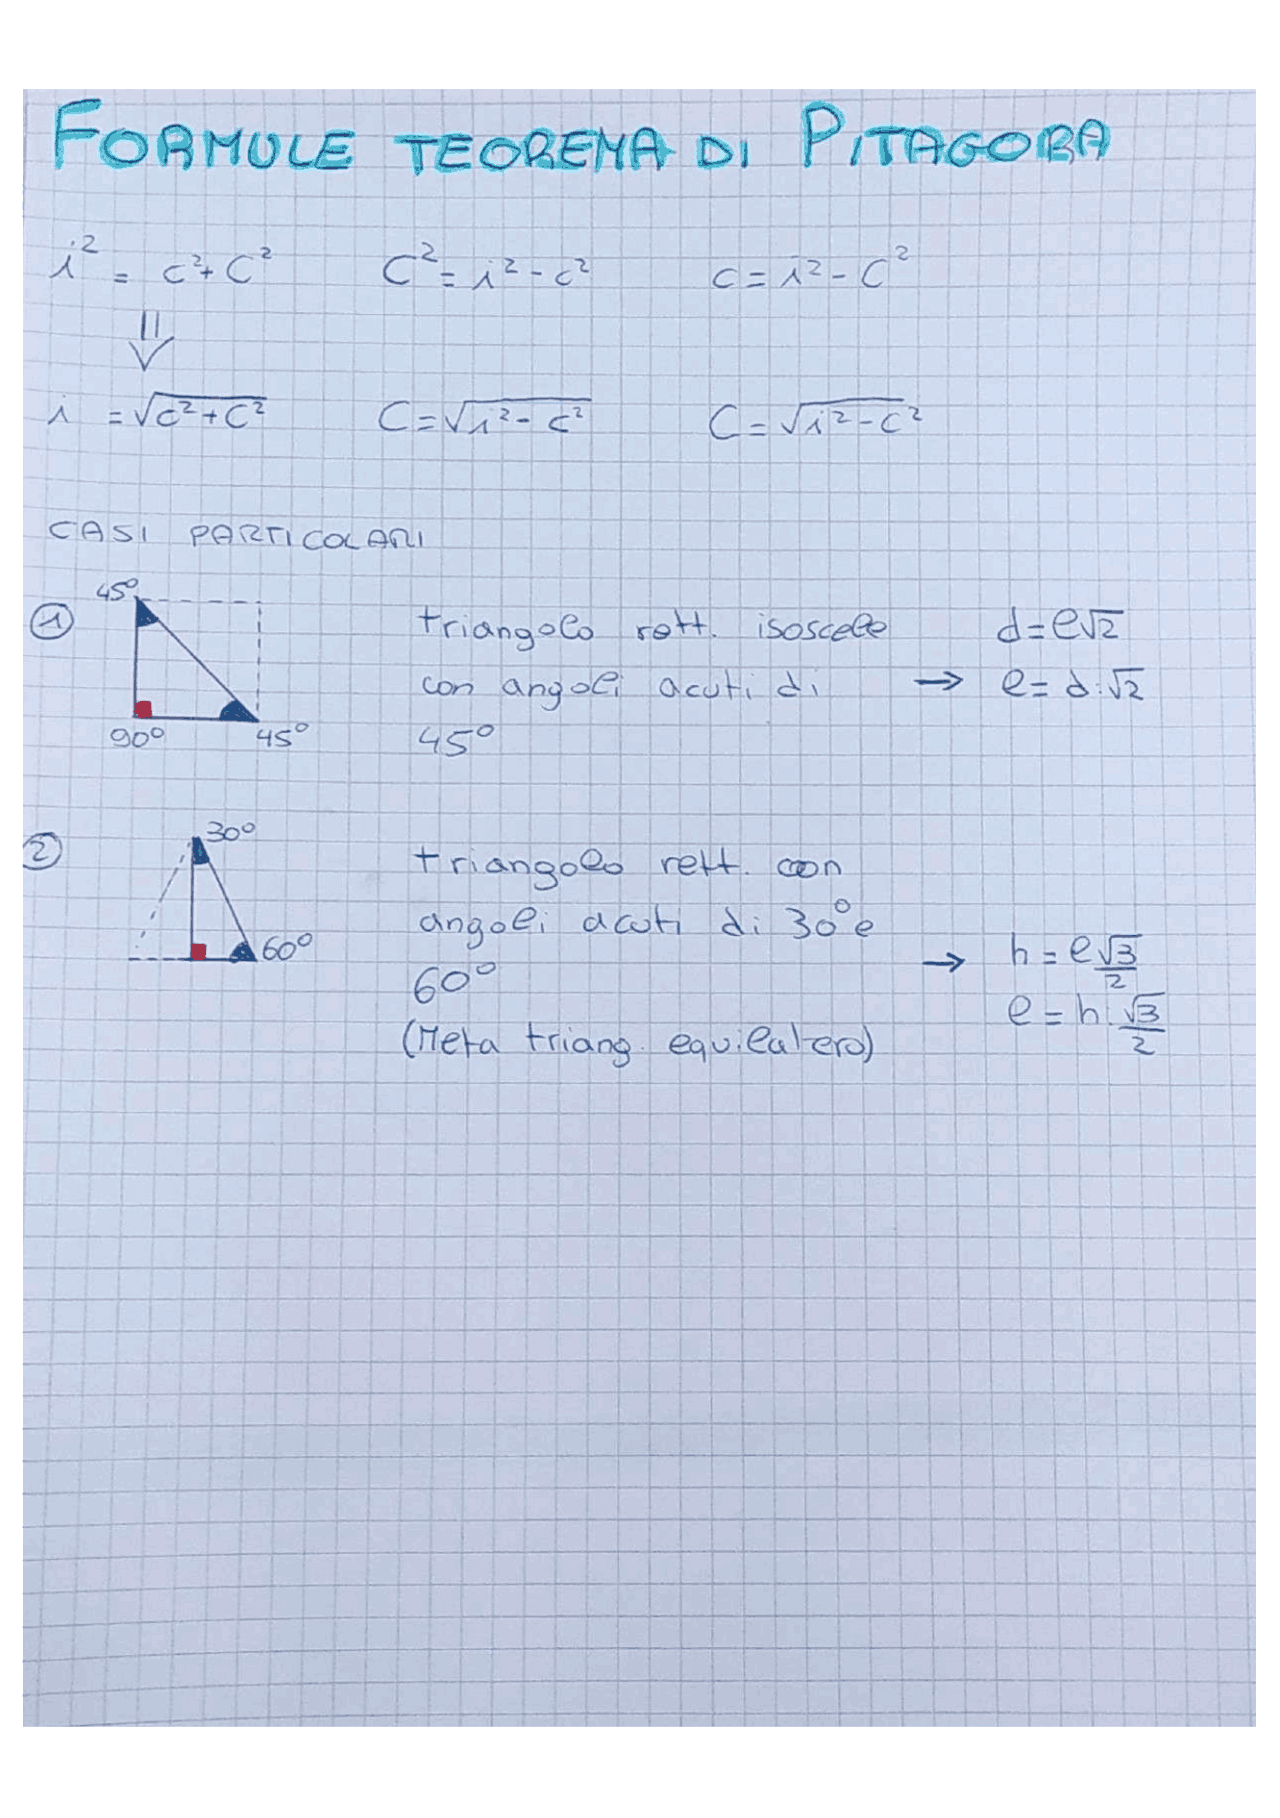 FORMULE TEOREMA DI PITAGORA
i² = c²+C² C²= i²-c² c = i²-C²
⇓
i =√c²+C² C=√i²-c² C=√i²-c²
CASI PARTICOLARI
45°
1 triangolo rett. isoscele d=l√2
con angoli acuti di → l= d:√2
90° 45° 45°
2 30° triangolo rett. con
angoli acuti di 30° e
60° 60° → h = l√3/2
(Meta triang. equilatero) l = h:√3/2